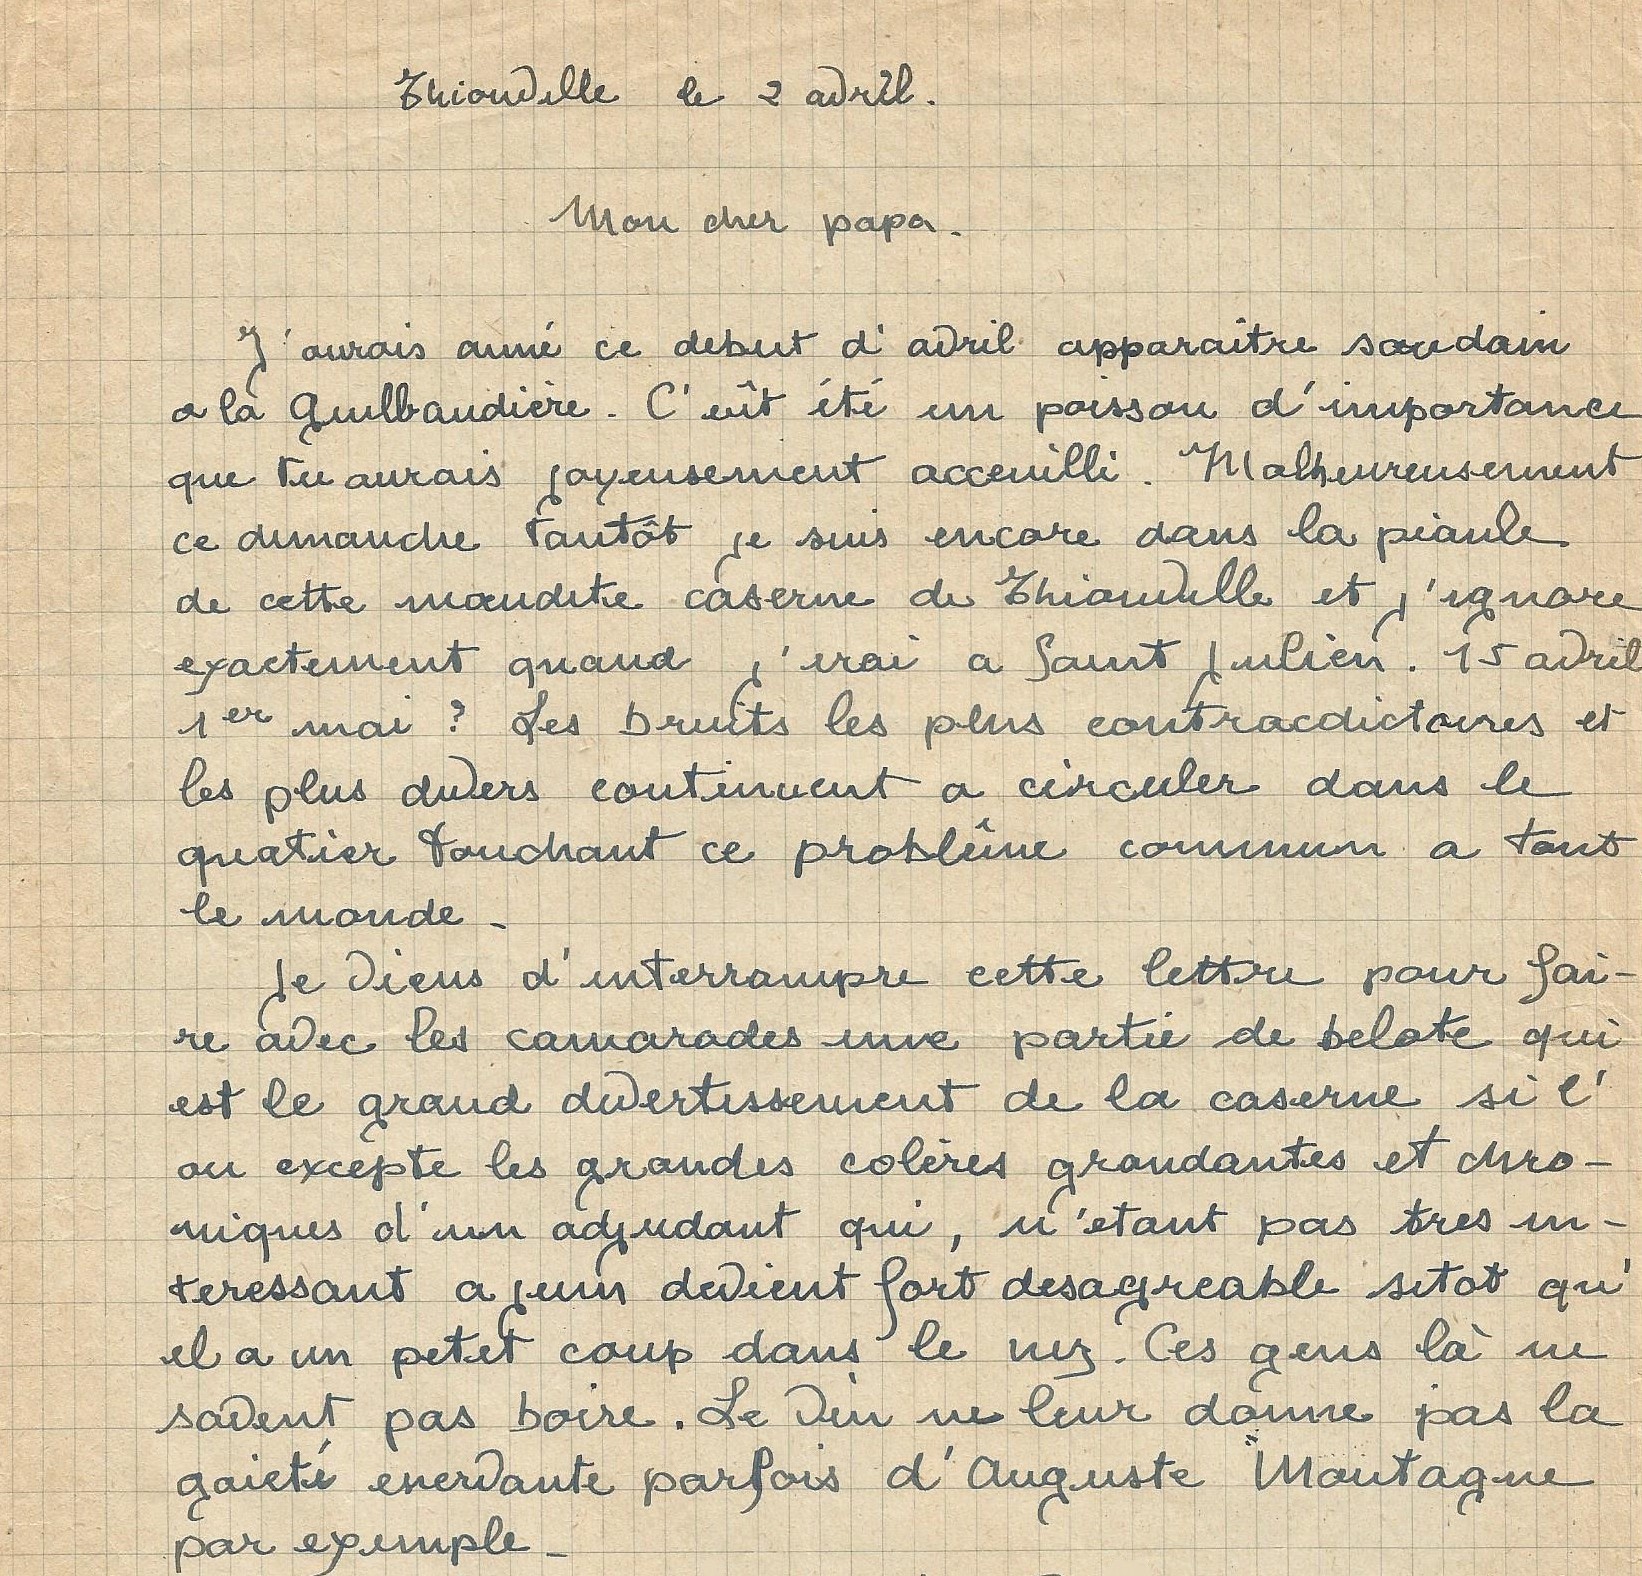 Thionville le 2 avril.
Mon cher papa.
J'aurais aimé ce debut d'avril apparaître soudain
a la Guilbaudière. C'eût été un poisson d'importance
que tu aurais joyeusement acceuilli. Malheureusement
ce dimanche tantôt je suis encore dans la piaule
de cette maudite caserne de Thionville et j'ignore
exactement quand j'irai a Saint Julien. 15 avril
1er mai ? Les bruits les plus contracdictoires et
les plus divers continuent a circuler dans le
quatier touchant ce problême commun a tout
le monde -
Je viens d'interrompre cette lettre pour fai-
re avec les camarades une partie de belote qui
est le grand divertissement de la caserne si l'
on excepte les grandes colères grondantes et chro-
niques d'un adjudant qui, n'etant pas tres in-
teressant a jeun devient fort desagreable sitot qu'
il a un petit coup dans le nez. Ces gens là ne
savent pas boire. Le vin ne leur donne pas la
gaieté enervante parfois d'Auguste Montagne
par exemple -